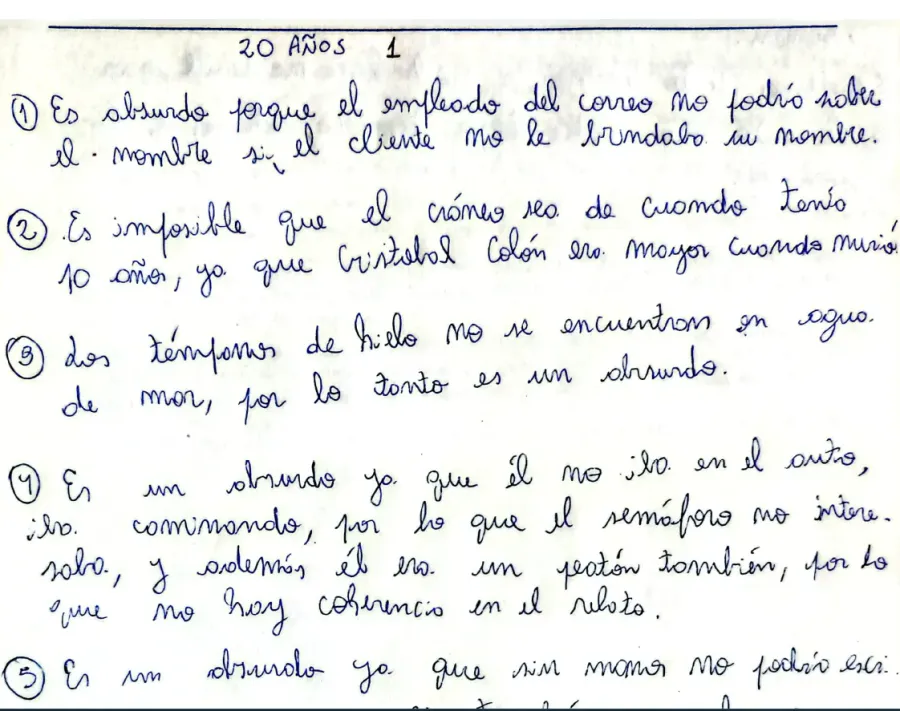 20 AÑOS 1
① Es absurdo porque el empleado del correo no podío saber
el . nombre si, el cliente no le brindaba su nombre.
② Es imposible que el cráneo sea de cuando tenío
10 años, ya que Cristobal Colón era mayor cuando murió
③ Los témpanos de hielo no se encuentran en agua
de mar, por lo tanto es un absurdo.
④ Es un absurdo ya que él no iba en el auto,
iba caminando, por lo que el semáforo no intere-
saba, y además él era un peatón también, por lo
que no hay coherencia en el relato.
⑤ Es un absurdo ya que sin manos no podrío escri-